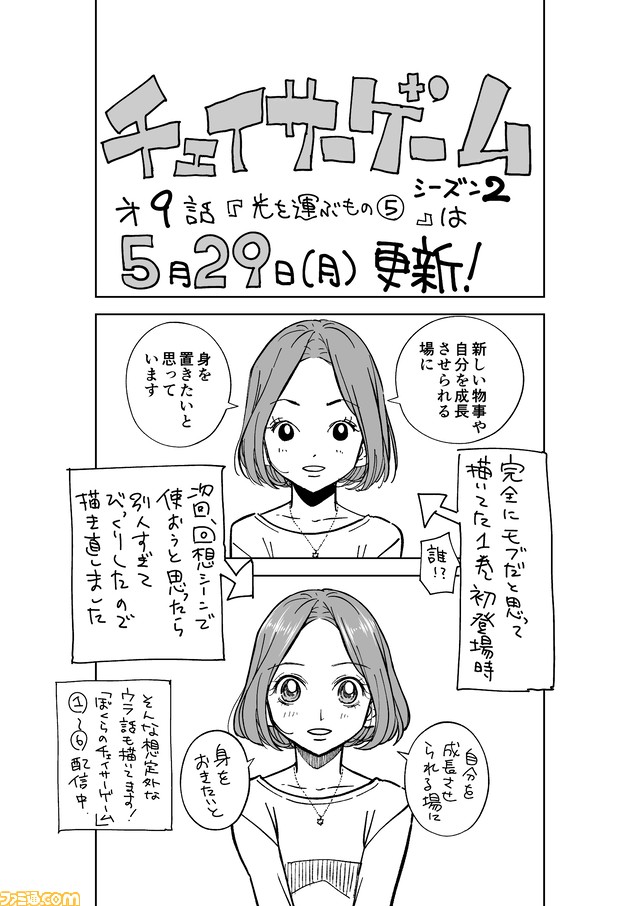 チェイサーゲーム
シーズン2
才9話『光を運ぶもの⑤』は
5月29日(月)更新!
新しい物事や
自分を成長
させられる
場に
身を
置きたいと
思って
います
完全にモブだと思って
描いてた1巻初登場時
誰!?
次回、回想シーンで
使おうと思ったら
別人すぎて
びっくりしたので
描き直しました
自分を
成長させ
られる場に
身を
おきたいと
そんな想定外な
ウラ話も描いてます!
「ぼくらのチェイサーゲーム」
①~⑥配信中
ファミ通.com